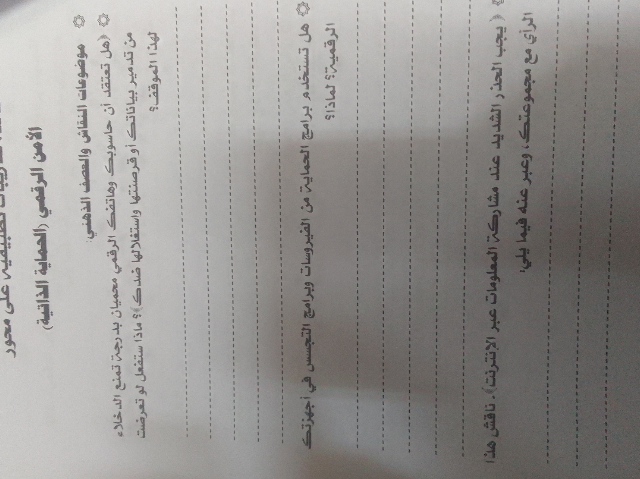 تطبيقية على محور
الأمن الرقمي (الحماية الذاتية)
۞ موضوعات النقاش والعصف الذهني:
۞ (هل تعتقد أن حاسوبك وهاتفك الرقمي محميان بدرجة تمنع الدخلاء
من تدمير بياناتك أو قرصنتها واستغلالها ضدك)؟ ماذا ستفعل لو تعرضت
لهذا الموقف؟
۞ هل تستخدم برامج الحماية من الفيروسات وبرامج التجسس في أجهزتك
الرقمية؟ لماذا؟
۞ ( يجب الحذر الشديد عند مشاركة المعلومات عبر الإنترنت). ناقش هذا
الرأي مع مجموعتك، وعبر عنه فيما يلي: